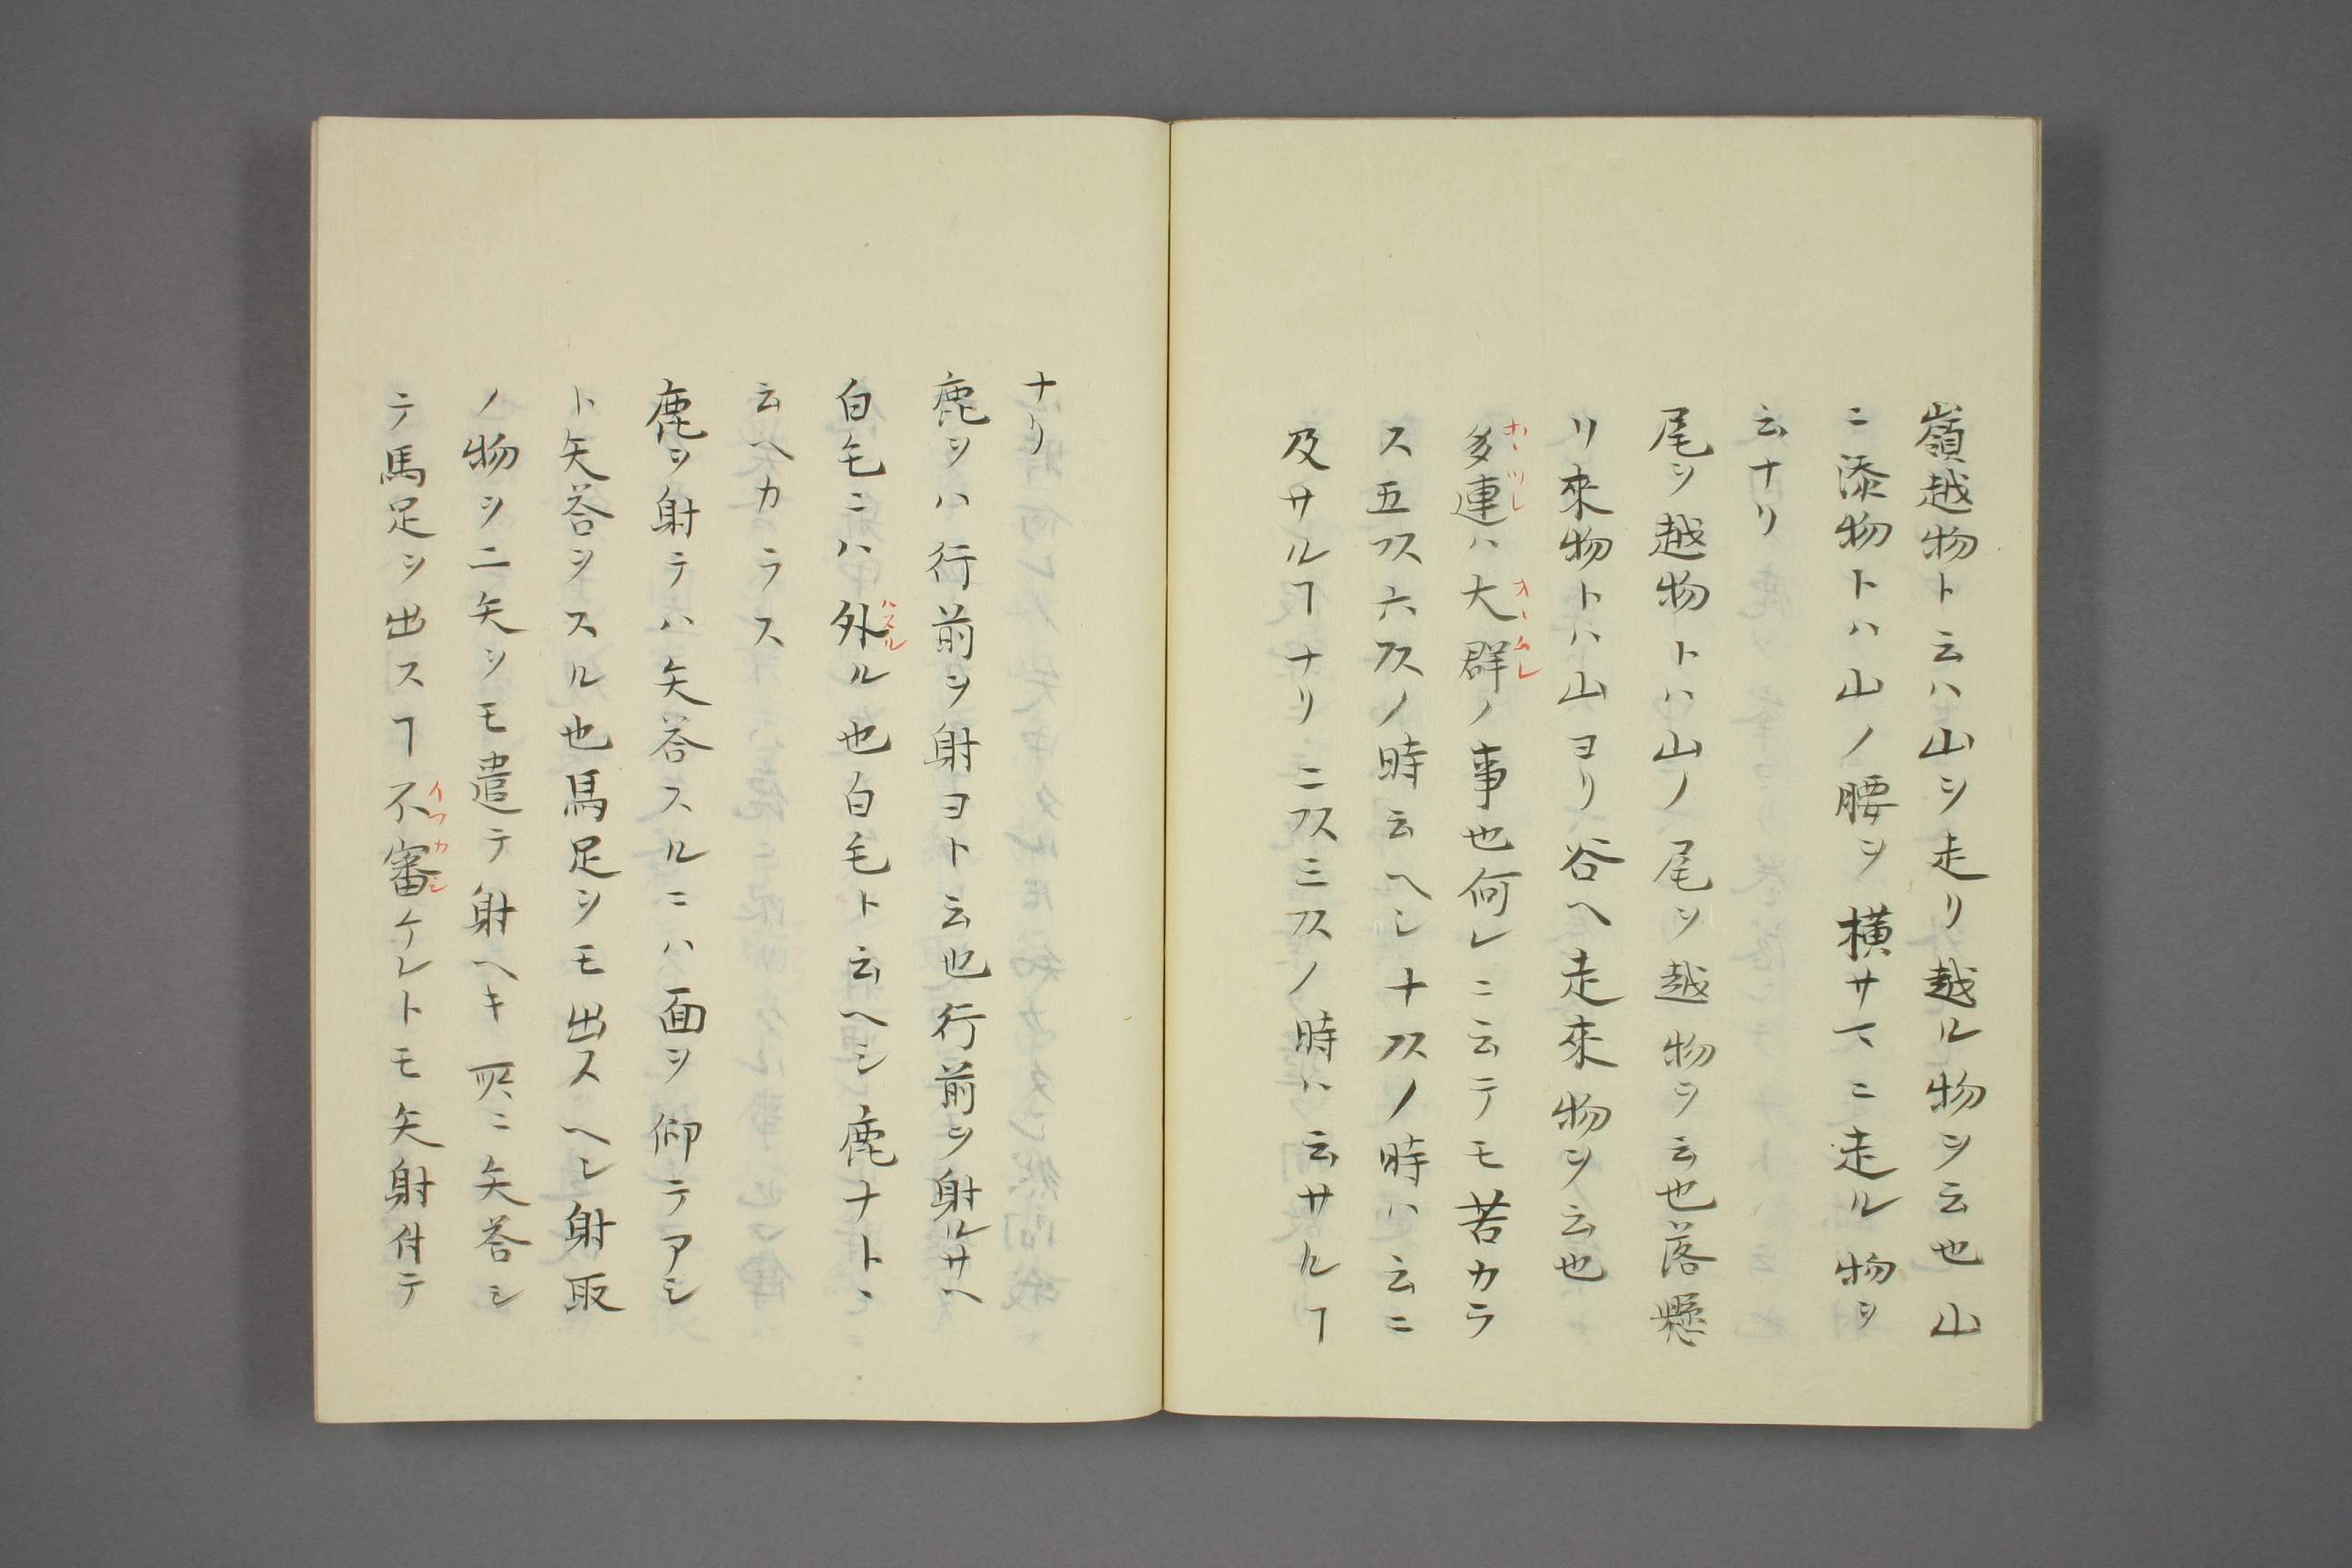 嶺越物ト云ハ山ヲ走リ越ル物ヲ云也山
ニ添物トハ山ノ腰ヲ横サマニ走ル物ヲ
云ナリ
尾ヲ越物トハ山ノ尾ヲ越物ヲ云也落懸
リ來物トハ山ヨリ谷ヘ走來物ヲ云也
多連ハ大群ノ事也何レニ云テモ苦カラ
ス五ヌ六ヌノ時云ヘシ十ヌノ時ハ云ニ
及サルヿナリ二ヌ三ヌノ時ハ云サルヿ
ナリ
鹿ヲハ行前ヲ射ヨト云也行前ヲ射ルサヘ
白毛ニハ外ル也白毛ト云ヘシ鹿ナトヽ
云ヘカラス
鹿ヲ射テハ矢荅スルニハ面ヲ仰テアシ
ト矢荅ヲスル也馬足ヲモ出スヘシ射取
ノ物ヲ二矢ヲモ遣テ射ヘキ所ニ矢荅シ
テ馬足ヲ出スヿ不審ケレトモ矢射付テ